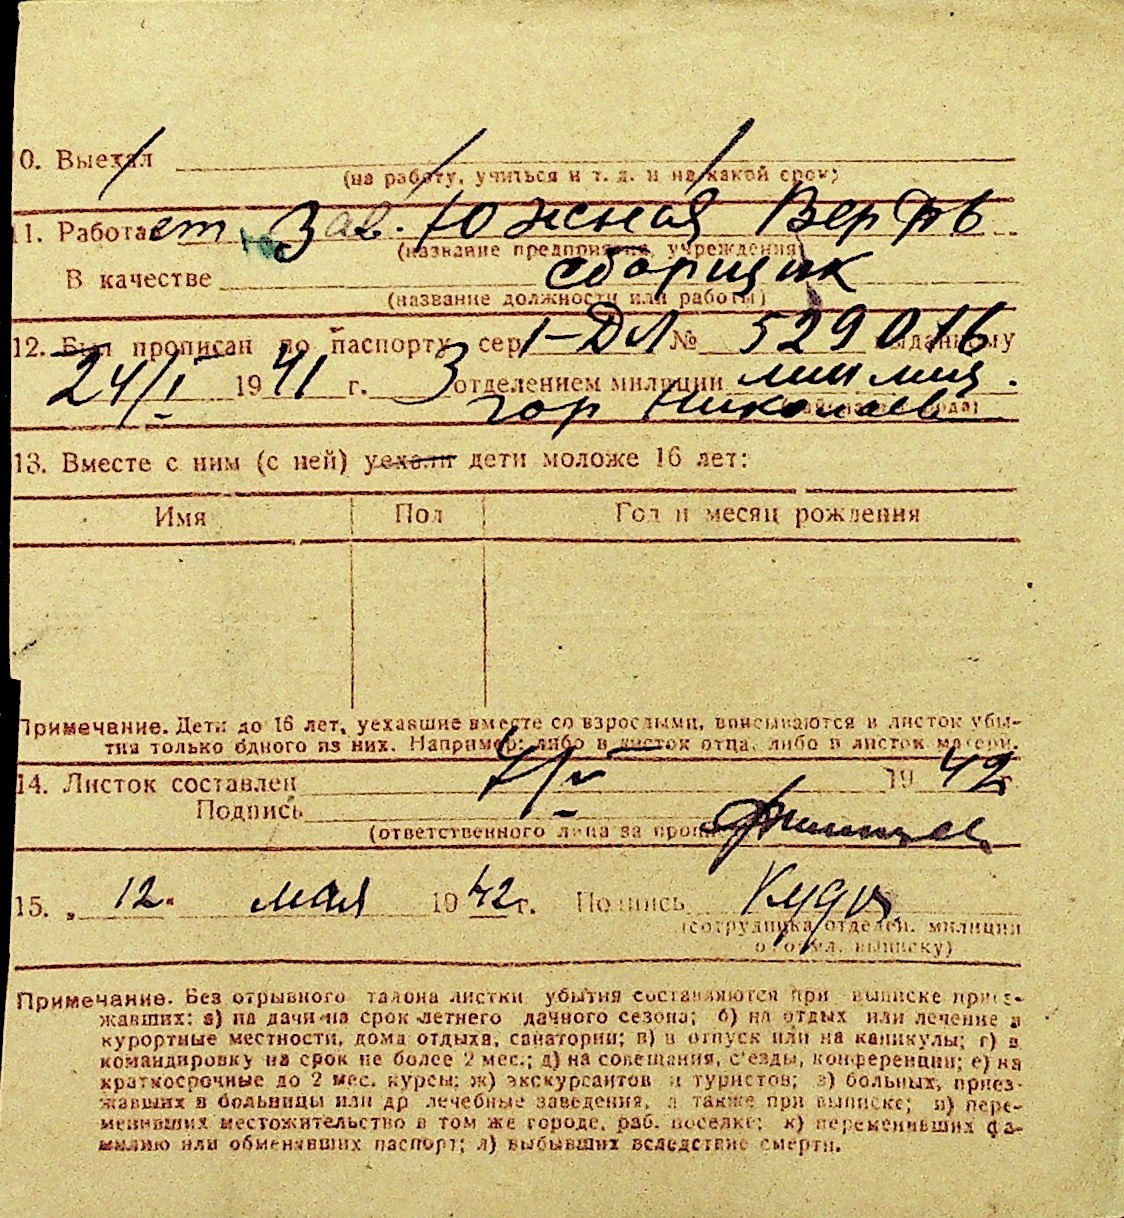 0. Выехал
(на работу, учиться и т. д. и на какой срок)
11. Работает Зав. Южная Верфь
(название предприятия, учреждения)
В качестве сборщик
(название должности или работы)
12. Был прописан по паспорту сер. 1-ДЛ № 529016 выданному
24/I 1941 г. 3 отделением милиции
гор Николаев
13. Вместе с ним (с ней) уехали дети моложе 16 лет:
Имя Пол Год и месяц рождения
Примечание. Дети до 16 лет, уехавшие вместе со взрослыми, вписываются в листок убы-
тия только одного из них. Например: либо в листок отца, либо в листок матери.
14. Листок составлен 1942 г.
Подпись
(ответственного лица за
15. „12“ мая 1942 г. Подпись
(сотрудника отделен. милиции
выписку)
Примечание. Без отрывного талона листки убытия составляются при выписке приез-
жавших: а) на дачи на срок летнего дачного сезона; б) на отдых или лечение в
курортные местности, дома отдыха, санатории; в) в отпуск или на каникулы; г) в
командировку на срок не более 2 мес.; д) на совещания, с'езды, конференции; е) на
краткосрочные до 2 мес. курсы; ж) экскурсантов и туристов; з) больных, приез-
жавших в больницы или др лечебные заведения, а также при выписке; и) пере-
менивших местожительство в том же городе, раб. поселке; к) переменивших фа-
милию или обменявших паспорт; л) выбывших вследствие смерти.